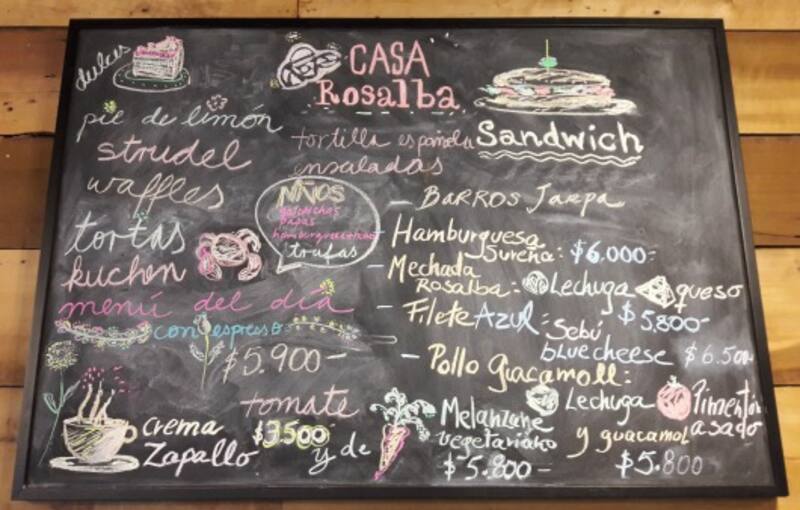 dulces
CASA
Rosalba
pie de limón
strudel
waffles
tortas
kuchen
menú del día
con espresso
$5.900-
tortilla española
ensaladas
NIÑOS
salchichas
papas
trufas
tomate
crema
Zapallo
$3500
y de
Sandwich
- BARROS Jarpa
- Hamburguesa
Sureña: $6.000-
- Mechada
Rosalba: Lechuga queso
$5.800-
- Filete Azul: Sebú
blue cheese $6.500
- Pollo Guacamoll:
Lechuga Pimentón
asado
y guacamol
$5.800
Melanzane
vegetariano
$5.800-